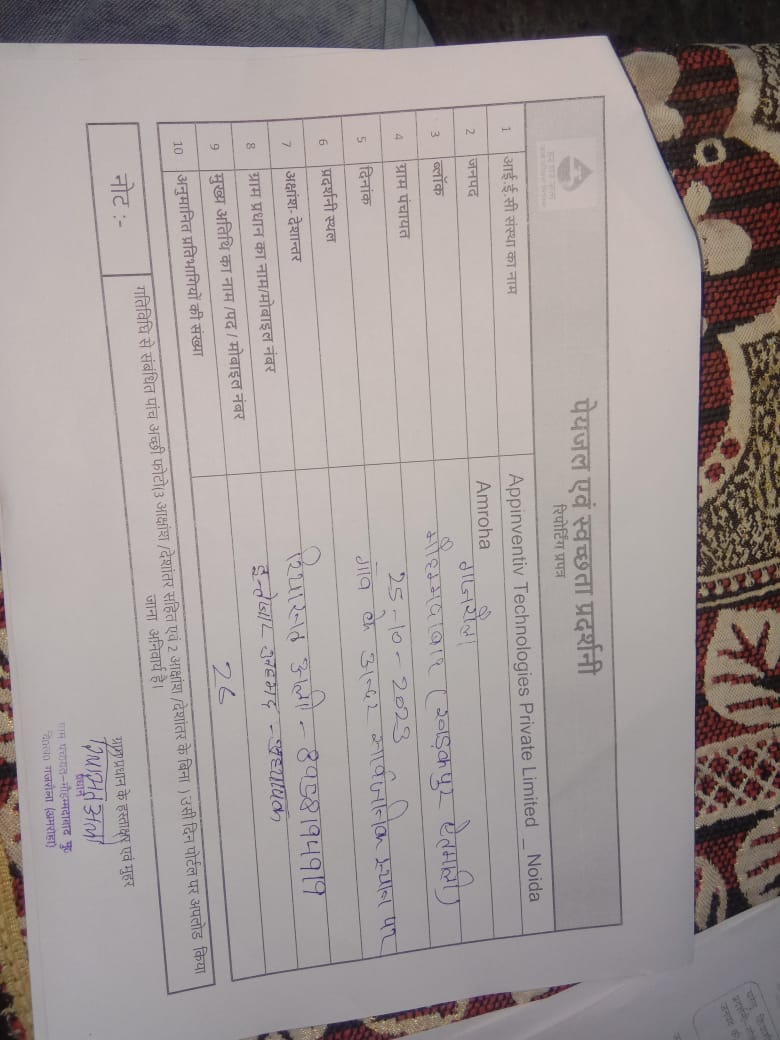 पेयजल एवं स्वच्छता प्रदर्शनी
रिपोर्टिंग प्रपत्र
1 आई.ई.सी संस्था का नाम Appinventiv Technologies Private Limited _ Noida
2 जनपद Amroha
3 ब्लॉक गजरौला
4 ग्राम पंचायत
5 दिनांक 25-10-2023
6 प्रदर्शनी स्थल गांव के अन्दर सार्वजनिक स्थान पर
7 अक्षांश-देशान्तर
8 ग्राम प्रधान का नाम/मोबाइल नंबर रियासत अली -
9 मुख्य अतिथि का नाम /पद / मोबाइल नंबर इन्तेजार अहमद - अध्यापक
10 अनुमानित प्रतिभागियों की संख्या 26
नोट :- गतिविधि से संबंधित पांच अच्छी फोटो(3 आक्षांश /देशांतर सहित एवं 2 आक्षांश /देशांतर के बिना ) उसी दिन पोर्टल पर अपलोड किया
जाना अनिवार्य है।
ग्राम प्रधान के हस्ताक्षर एवं मुहर
प्रधान
गजरौला (अमरोहा)